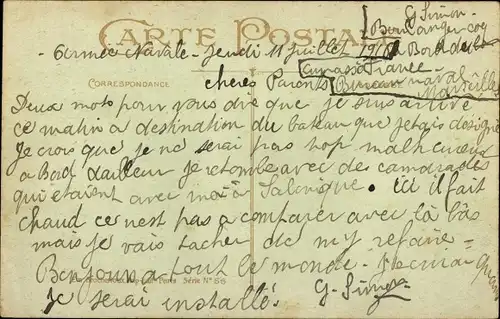 CARTE POSTALE
G. Simon
Boulanger coq
a Bord du
Armée Navale - Jeudi 11 juillet 1918
Cuirassé France -
Bureau naval
Marseille
CORRESPONDANCE
chers Parents
Deux mots pour vous dire que je suis arrivé
ce matin a destination du bateau que jetais designé
Je crois que je ne serai pas trop malheureux
a Bord dailleur je retombe avec des camarades
qui etaient avec moi à Salonique. ici il fait
chaud ce nest pas a comparer avec là bâs
mais je vais tacher de my refaire =
Bonjour a tout le monde. Recrirai quand
Paris Série No 86
je serai installé. G. Simon